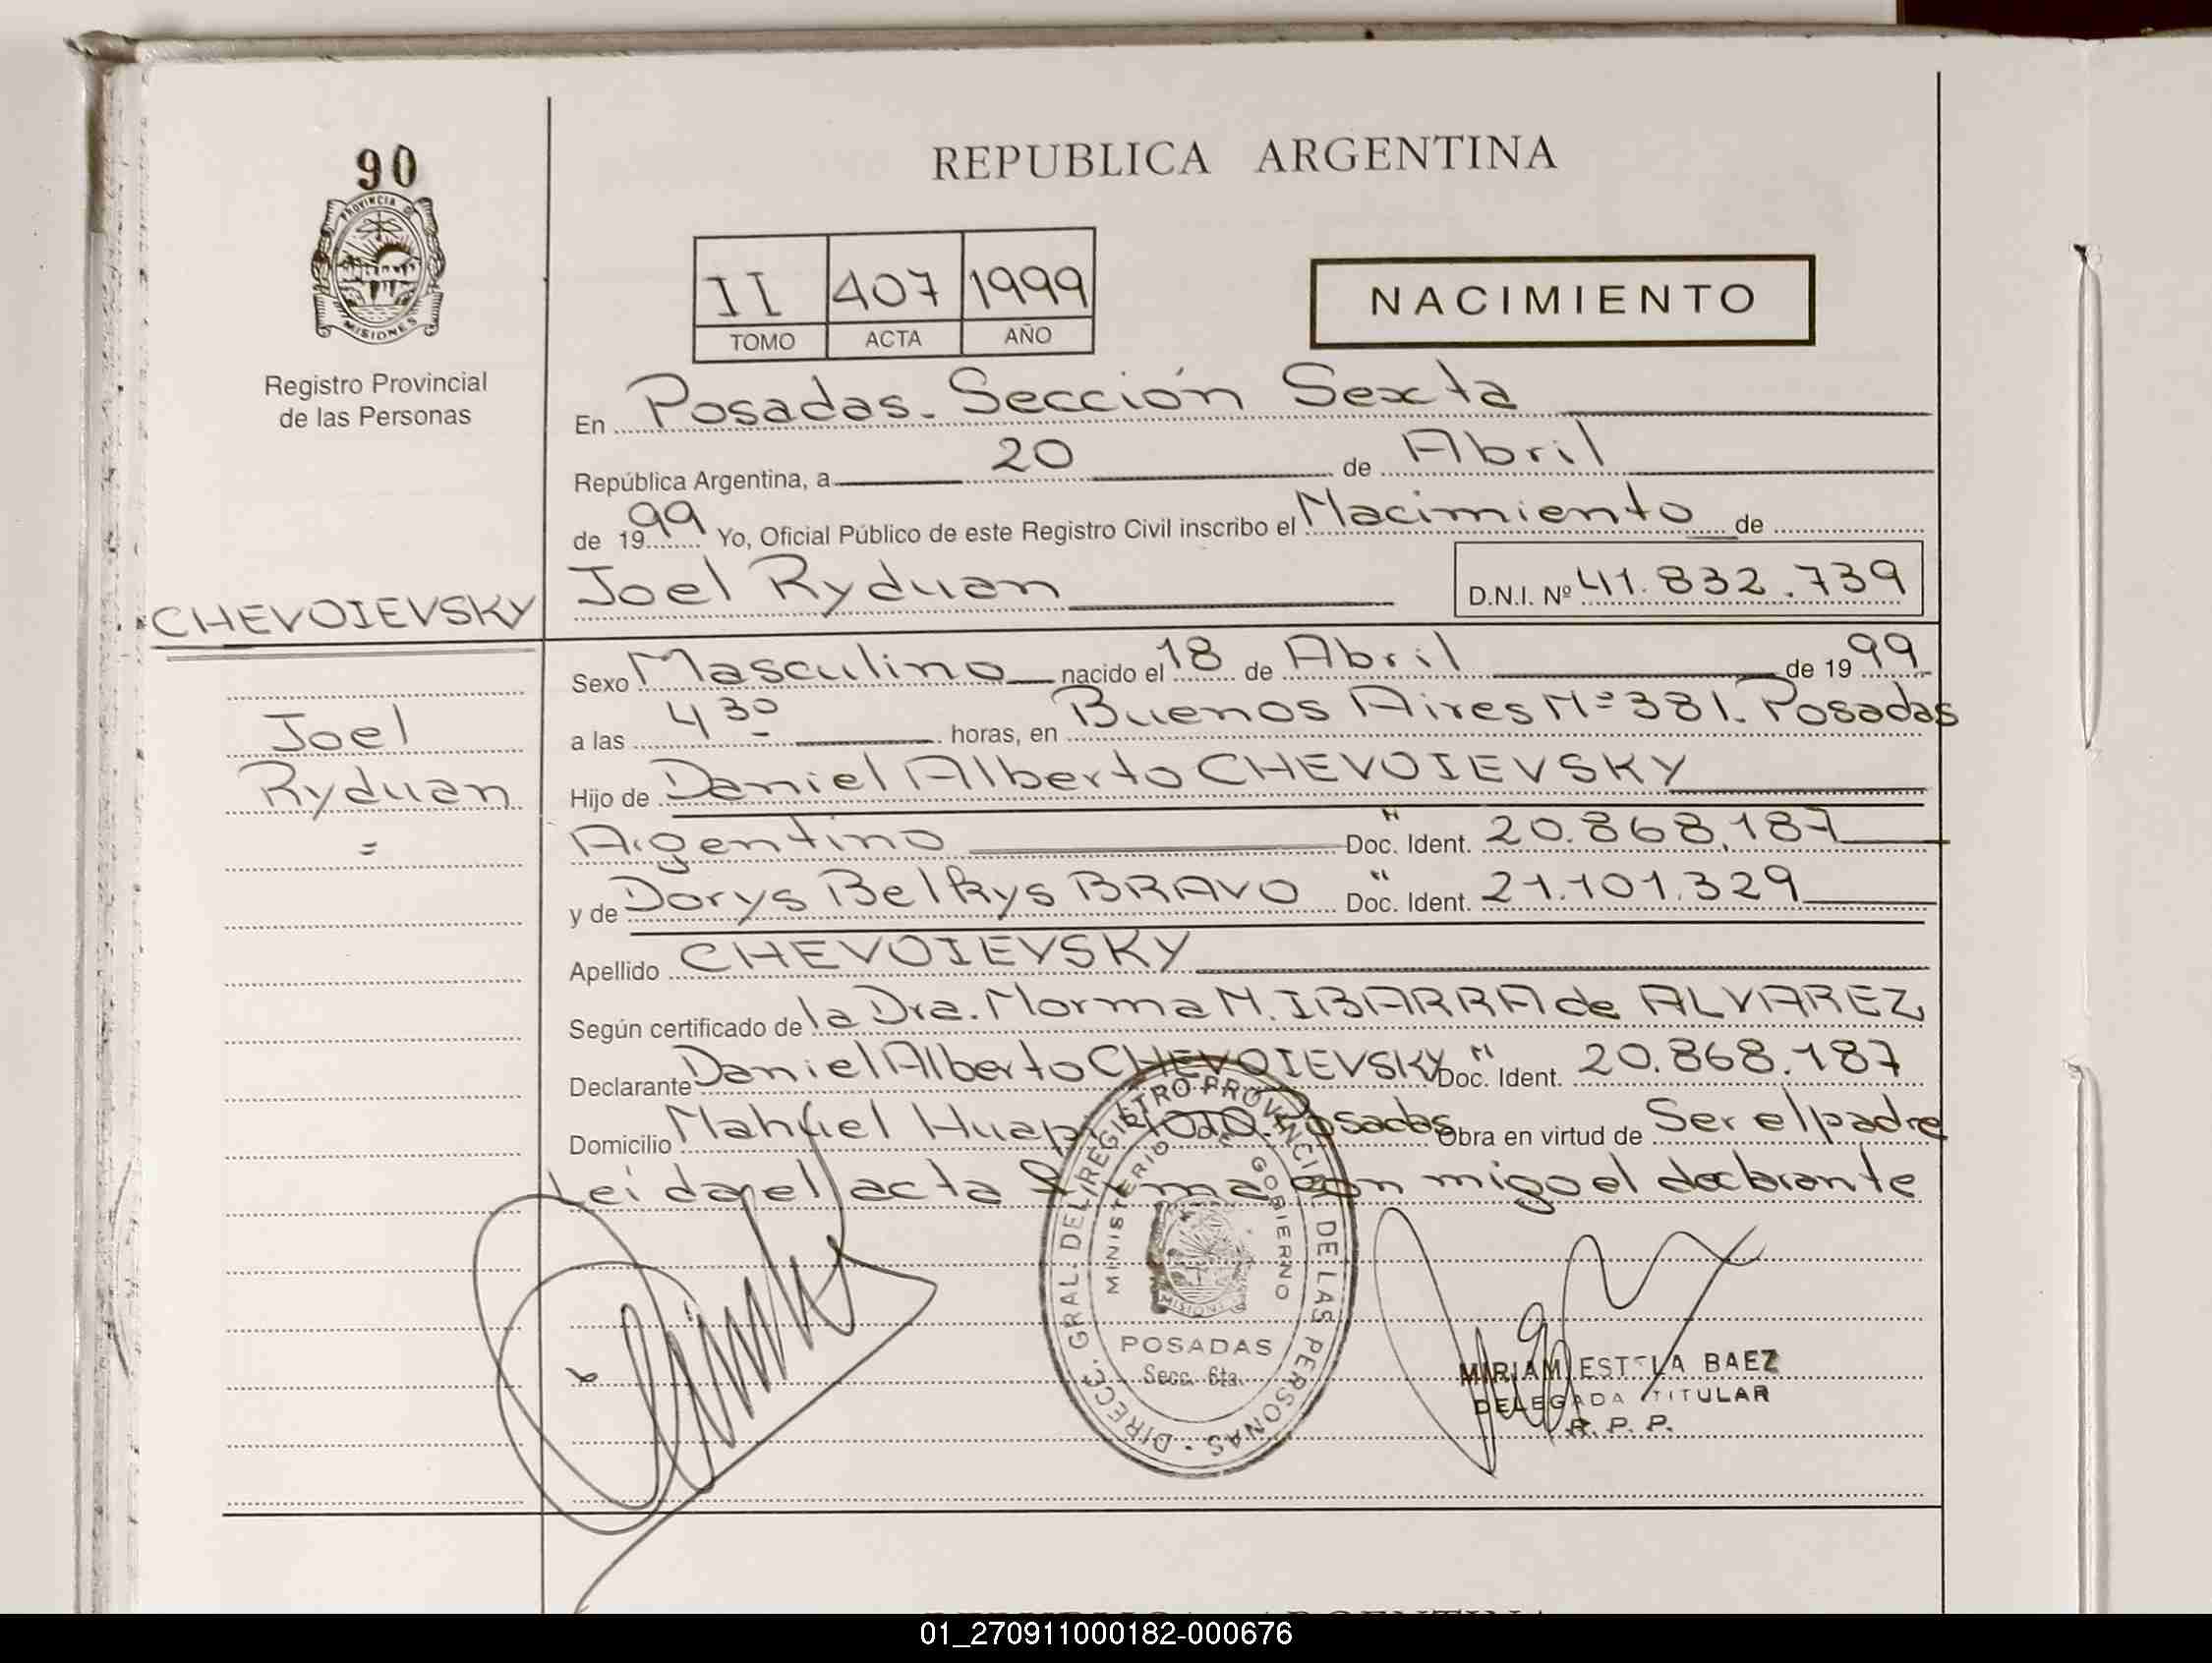 90
PROVINCIA DE
MISIONES
Registro Provincial
de las Personas
CHEVOIEVSKY
Joel
Ryduan
=
REPUBLICA ARGENTINA
II 407 1999
TOMO ACTA AÑO
NACIMIENTO
En Posadas. Sección Sexta
República Argentina, a 20 de Abril
de 1999 Yo, Oficial Público de este Registro Civil inscribo el Nacimiento de
Joel Ryduan D.N.I. Nº 41.832.739
Sexo Masculino nacido el 18 de Abril de 1999
a las 4 30 horas, en Buenos Aires Nº 381. Posadas
Hijo de Daniel Alberto CHEVOIEVSKY
Argentino Doc. N Ident. 20.868.187
y de Dorys Belkys BRAVO Doc. N Ident. 21.101.329
Apellido CHEVOIEVSKY
Según certificado de la Dra. Norma N. IBARRA de ALVAREZ
Declarante Daniel Alberto CHEVOIEVSKY Doc. N Ident. 20.868.187
Domicilio Nahuel Huapi Posadas Obra en virtud de Ser el padre
Leida el acta firma con migo el declarante
DIRECC. GRAL. DEL REGISTRO PROVINCIAL DE LAS PERSONAS
MINISTERIO DE GOBIERNO
MISIONES
POSADAS
Secc. 6ta.
MIRIAM ESTELA BAEZ
DELEGADA TITULAR
R. P. P.
REPUBLICA ARGENTINA
01_270911000182-000676